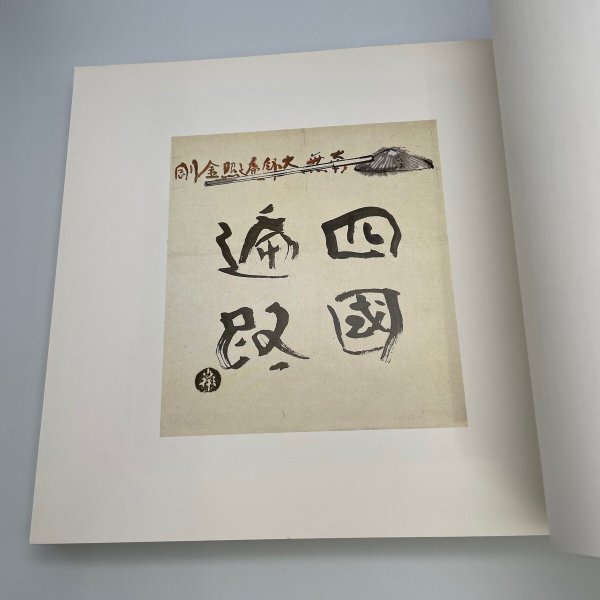 南無大師遍照金剛
四國
遍路